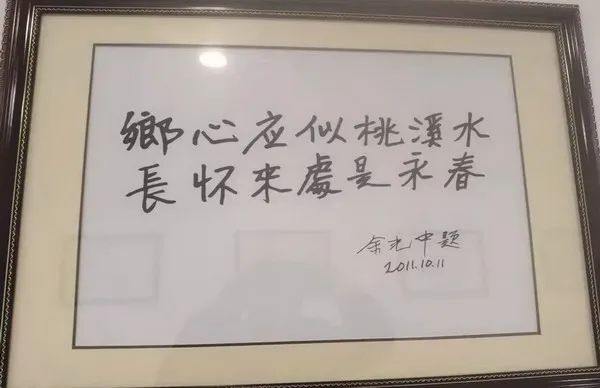 鄉心应似桃溪水
長怀來處是永春
余光中題
2011.10.11